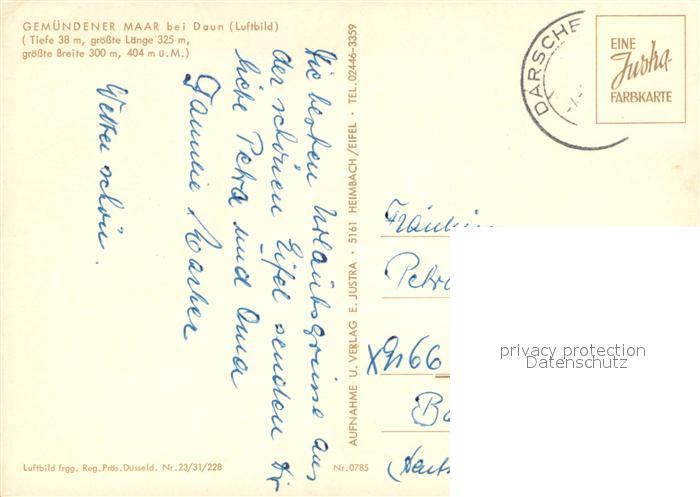 GEMÜNDENER MAAR bei Daun (Luftbild)
( Tiefe 38 m, größte Länge 325 m,
größte Breite 300 m, 404 m ü. M.)
Die besten Urlaubsgrüsse aus
der schönen Eifel senden Dir
liebe Petra und Oma
Familie
Wetter schön.
Luftbild frgg. Reg. Präs. Düsseld. Nr. 23/31/228
Nr. 0785
AUFNAHME U. VERLAG E. JUSTRA · 5161 HEIMBACH/EIFEL · TEL. 02446-3359
DARSCHE
EINE
Justra-
FARBKARTE
Fräulein
Petra
66
privacy protection
Datenschutz